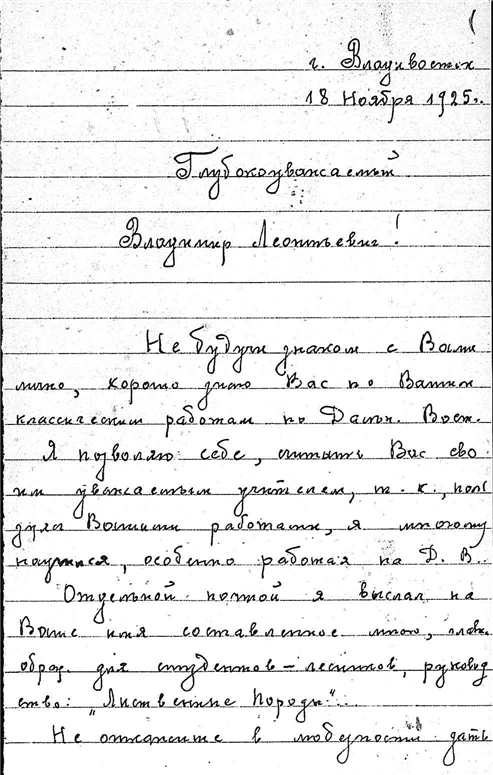 г. Владивосток
18 Ноября 1925 г.
Глубокоуважаемый
Владимир Леонтьевич!
Не будучи знаком с Вами
лично, хорошо знаю Вас по Вашим
классическим работам по Дальн. Вост.
Я позволяю себе, считать Вас сво
им уважаемым учителем, т. к.,
Вашими работами, я многому
научился, особенно работая на Д. В.
Отдельной почтой я выслал на
Ваше имя составленное мною, главн.
образ. для студентов – лесников, руковод
ство: „Лиственные Породы"
Не откажите в любезности дать